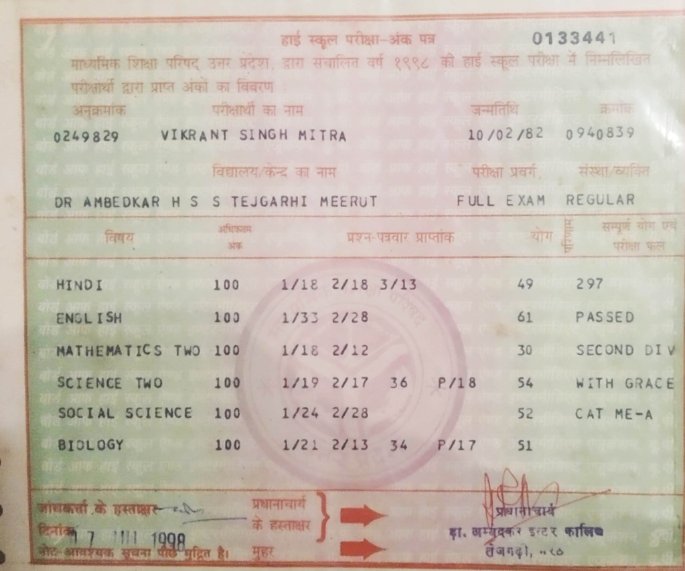 हाई स्कूल परीक्षा-अंक पत्र 0133441
माध्यमिक शिक्षा परिषद् उत्तर प्रदेश, द्वारा संचालित वर्ष १९९८ की हाई स्कूल परीक्षा में निम्नलिखित
परीक्षार्थी द्वारा प्राप्त अंकों का विवरण :
अनुक्रमांक परीक्षार्थी का नाम जन्मतिथि क्रमांक
0249829 VIKRANT SINGH MITRA 10/02/82 0940839
विद्यालय/केन्द्र का नाम परीक्षा प्रवर्ग, संस्था/व्यक्ति
DR AMBEDKAR H S S TEJGARHI MEERUT FULL EXAM REGULAR
विषय अधिकतम अंक प्रश्न-पत्रवार प्राप्तांक योग परिणाम सम्पूर्ण योग एवं परीक्षा फल
HINDI 100 1/18 2/18 3/13 49 297
ENGLISH 100 1/33 2/28 61 PASSED
MATHEMATICS TWO 100 1/18 2/12 30 SECOND DIV
SCIENCE TWO 100 1/19 2/17 36 P/18 54 WITH GRACE
SOCIAL SCIENCE 100 1/24 2/28 52 CAT ME-A
BIOLOGY 100 1/21 2/13 34 P/17 51
जांचकर्ता के हस्ताक्षर प्रधानाचार्य के हस्ताक्षर प्रधानाचार्य
दिनांक 1998 डा. अम्बेदकर इन्टर कालिज
नोट-आवश्यक सूचना पीछे मुद्रित है। मुहर तेजगढ़ी,